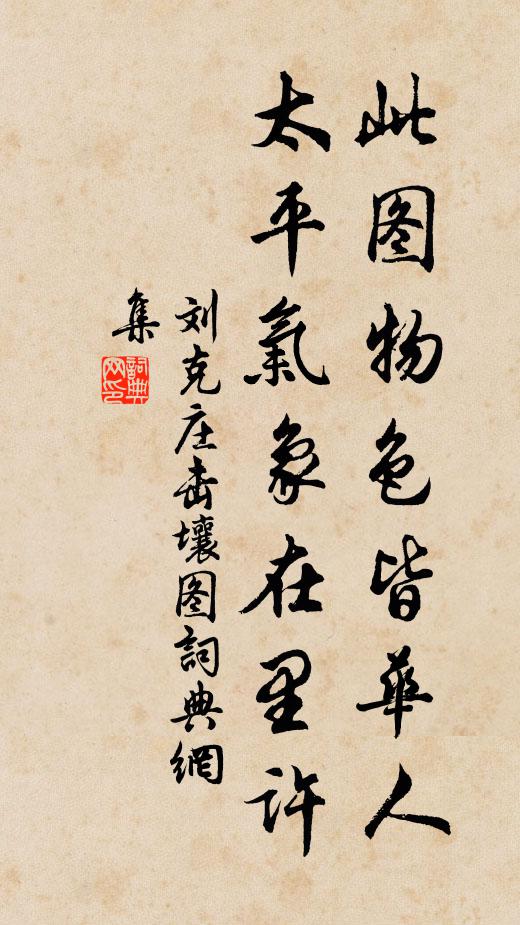 此图物色皆華人
太平氣象在里許
刘克庄击壤图詞典網
集
詞典
网印